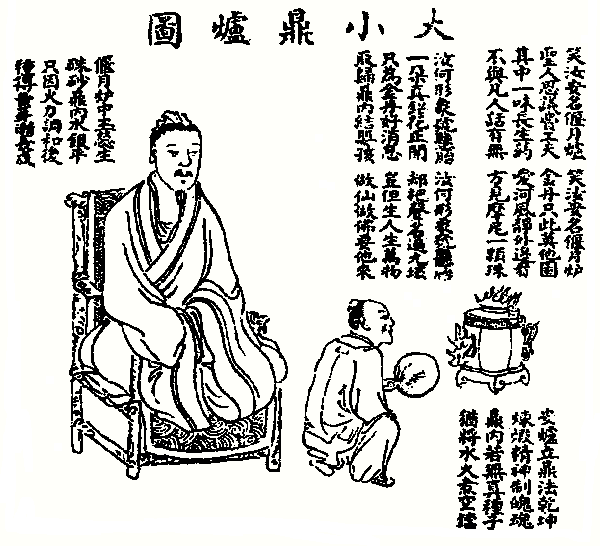 大小鼎爐圖
笑汝安名偃月爐
聖人思議費工夫
其中一味長生藥
不與凡人話有無
笑汝安名偃月炉
金丹只此莫他圖
愛河風靜外邊看
方見摩尼一顆珠
汝何形象號懸胎
一朶真鉛花正開
只為金丹好消息
取歸鼎內結嬰孩
汝何形象號懸胎
却把聲名遍九垓
豈但生人生萬物
做仙做佛要他來
偃月炉中玉蕊生
硃砂鼎內水銀平
只因火力調和後
種得黃芽漸長成
安爐立鼎法乾坤
煉煅精神制魄魂
鼎內若無真種子
猶將水火煮空鐺